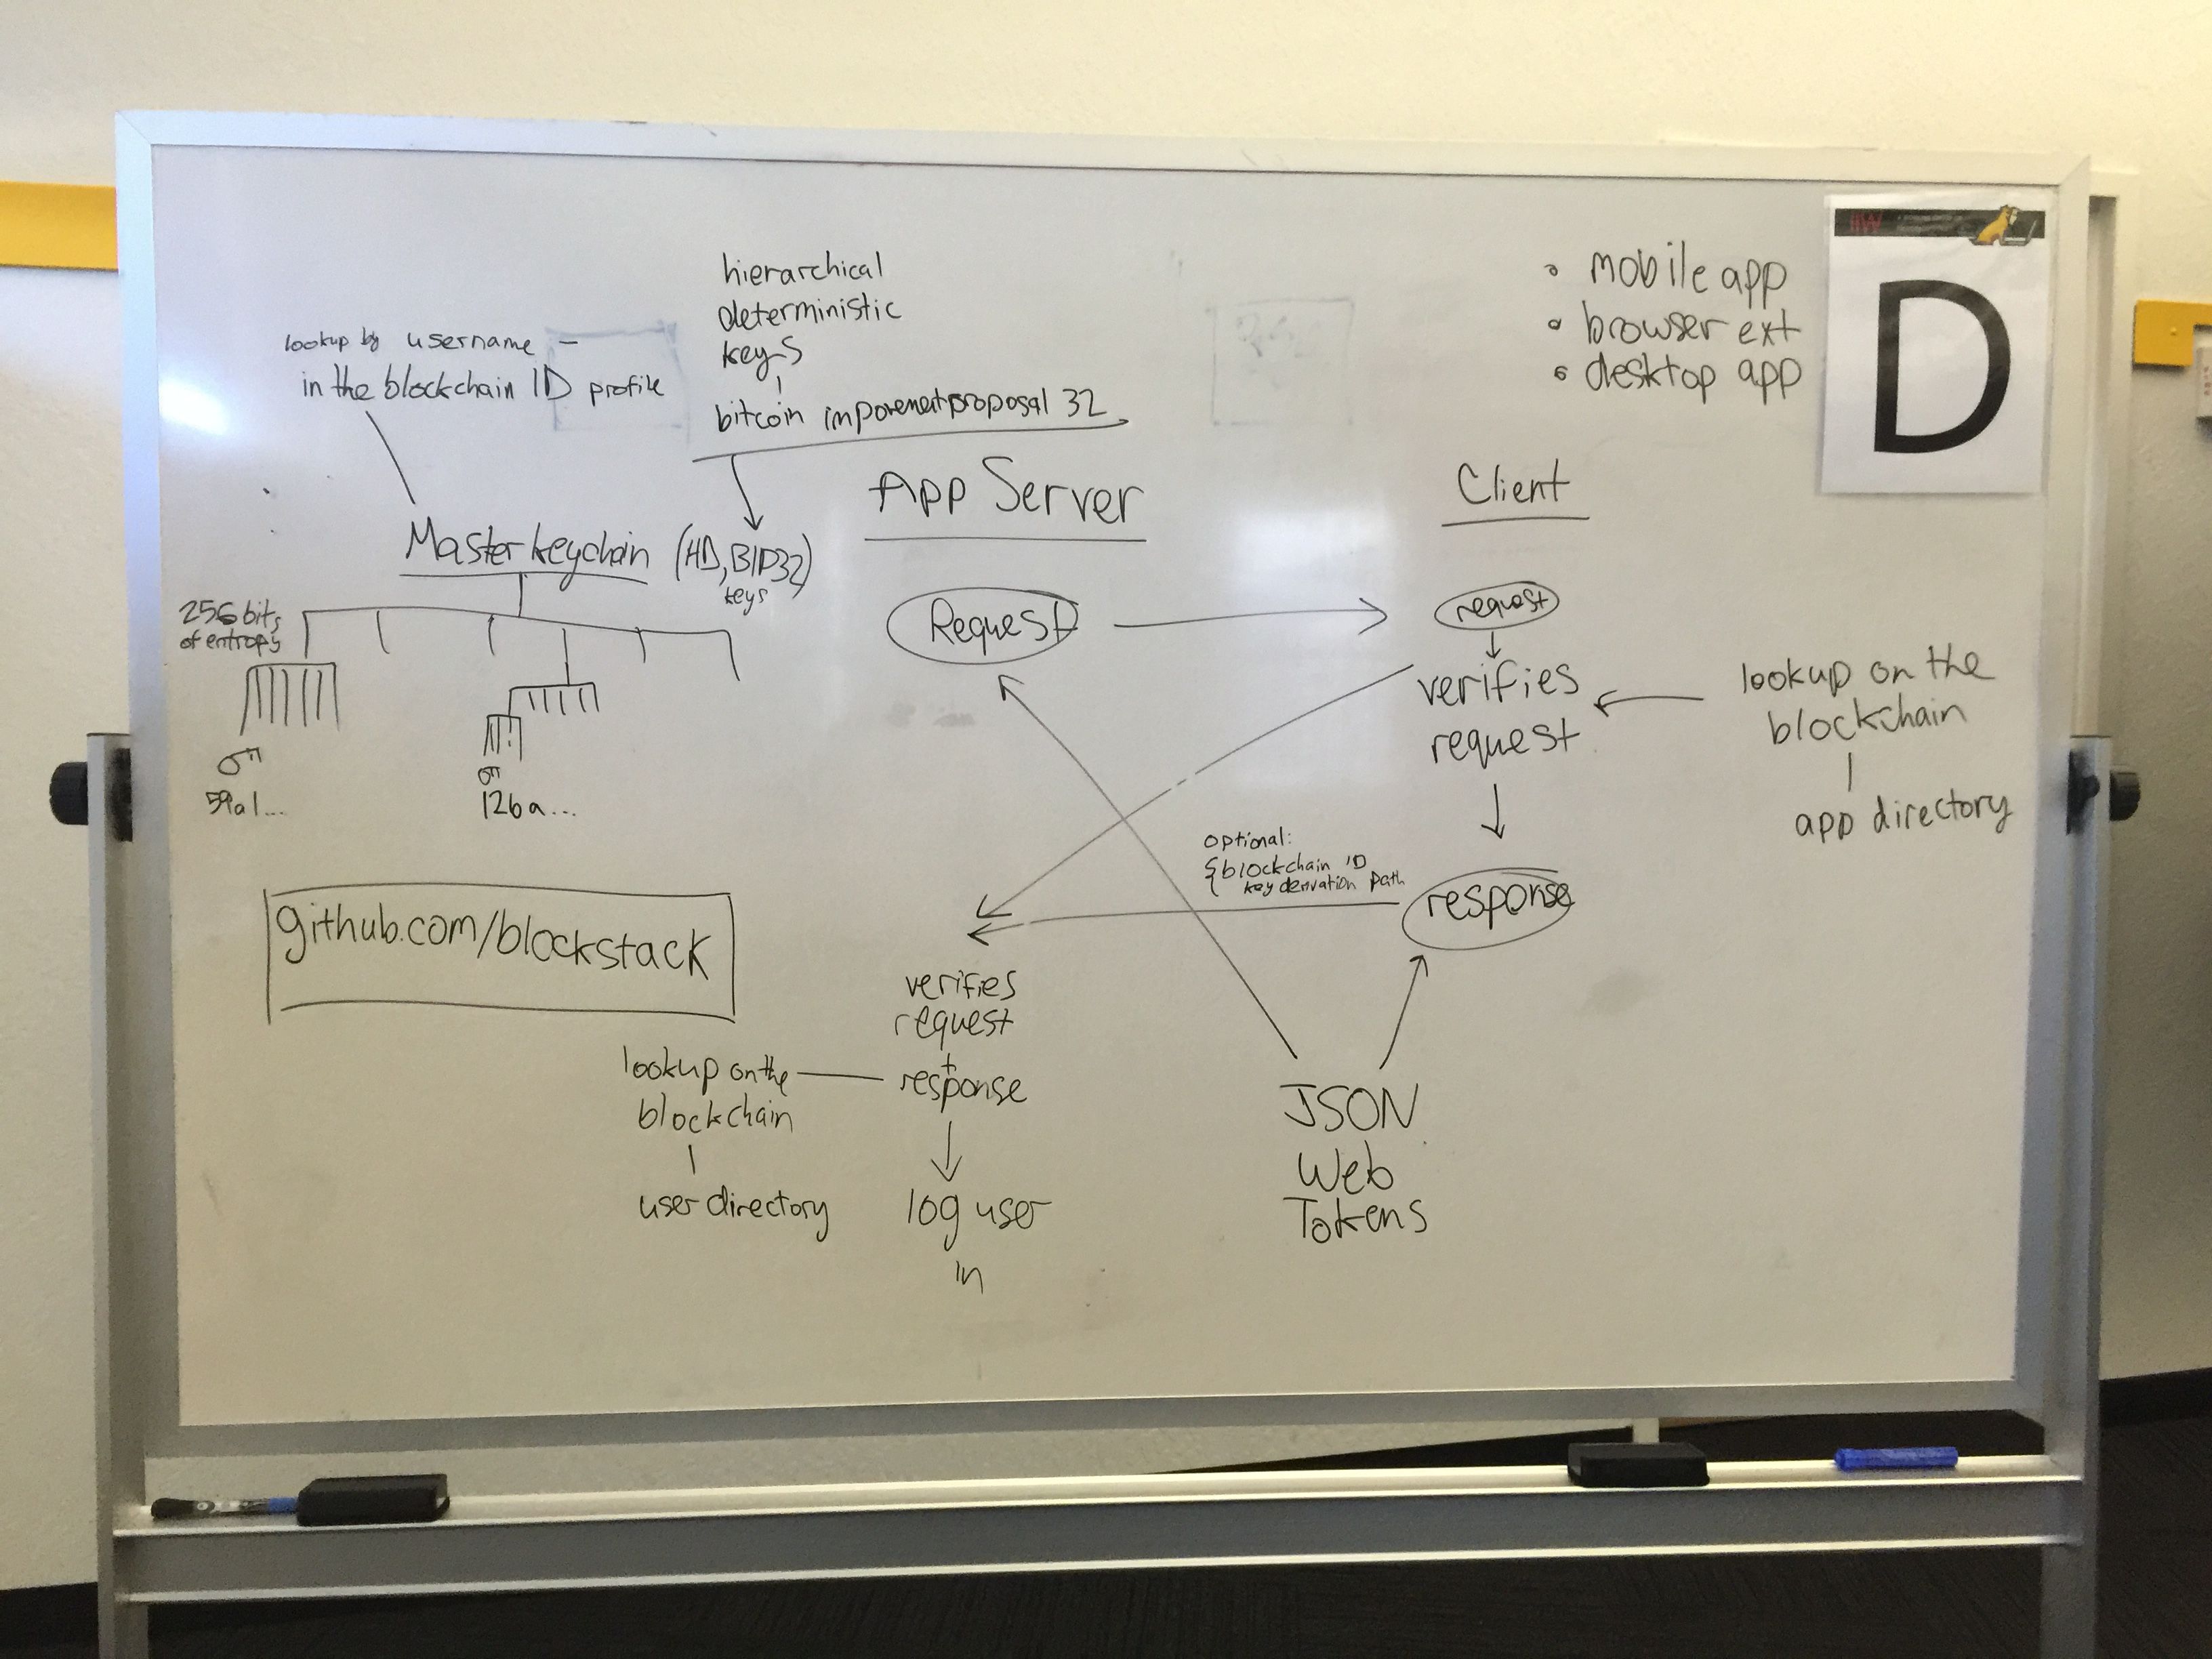 hierarchical
deterministic
keys
bitcoin imporementproposal 32
lookup by username -
in the blockchain ID profile
Master keychain (HD, BIP32)
keys
256 bits
of entropy
59a1...
126a...
github.com/blockstack
App Server
Request
verifies
request
+
response
log user
in
lookup on the
blockchain
user directory
optional:
{blockchain ID
key derivation path
JSON
Web
Tokens
• mobile app
• browser ext
• desktop app
Client
request
verifies
request
response
lookup on the
blockchain
app directory
IIW
D